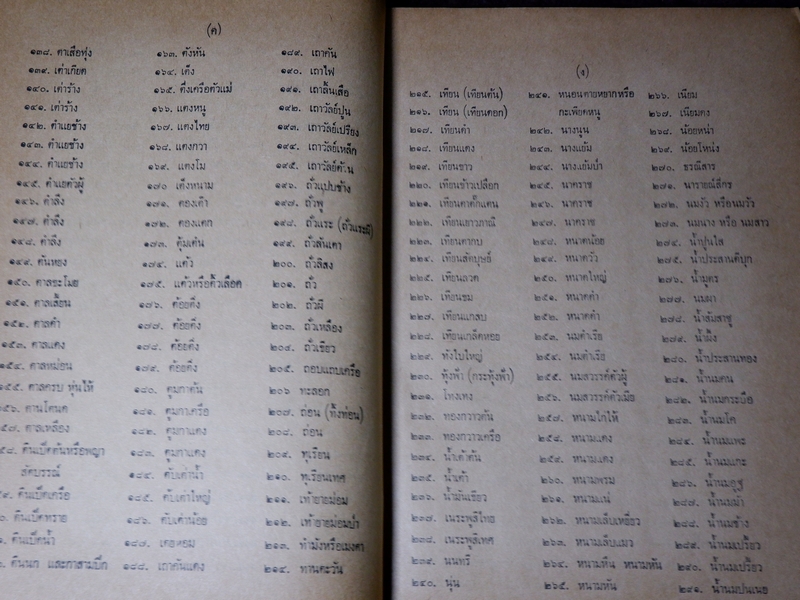 (ค)
๑๓๘. ตาเสือทุ่ง
๑๓๙. เต่าเกียด
๑๔๐. เต่าร้าง
๑๔๑. เต่าร้าง
๑๔๒. ตำแยช้าง
๑๔๓. ตำแยช้าง
๑๔๔. ตำแยช้าง
๑๔๕. ตำแยตัวผู้
๑๔๖. ตำลึง
๑๔๗. ตำลึง
๑๔๘. ตำลึง
๑๔๙. ต้นทอง
๑๕๐. ตาลขะโมย
๑๕๑. ตาลเสี้ยน
๑๕๒. ตาลดำ
๑๕๓. ตาลแดง
๑๕๔. ตาลหม่อน
๑๕๕. ตาลครบ ทุ่นไห้
ตานโตนด
ตาลเหลือง
ตีนเป็ดต้นหรือพญา
สัตบรรณ์
ตีนเป็ดเครือ
ตีนเป็ดทราย
ตีนเป็ดน้ำ
ตีนนก และกาสามปีก
๑๖๓. ตังหัน
๑๖๔. เต็ง
๑๖๕. ตึ่งเครือตัวแม่
๑๖๖. แตงหนู
๑๖๗. แตงไทย
๑๖๘. แตงกวา
๑๖๙. แตงโม
๑๗๐ เต็งหนาม
๑๗๑. ตองเต๊า
๑๗๒. ตองแตก
๑๗๓. ตุ้มเต๋น
๑๗๔. แต้ว
๑๗๕. แต้วหรือติ้วเลือด
๑๗๖. ต้อยติ่ง
๑๗๗. ต้อยติ่ง
๑๗๘. ต้อยติ่ง
๑๗๙. ต้อยติ่ง
๑๘๐. ตูมกาต้น
๑๘๑. ตูมกาเครือ
๑๘๒. ตูมกาแดง
๑๘๓. ตูมกาแดง
๑๘๔. ตับเต่าน้ำ
๑๘๕. ตับเต่าใหญ่
๑๘๖. ตับเต่าน้อย
๑๘๗. เตยหอม
๑๘๘. เถาคันแดง
๑๘๙. เถาคัน
๑๙๐. เถาไฟ
๑๙๑. เถาลิ้นเสือ
๑๙๒. เถาวัลย์ปูน
๑๙๓. เถาวัลย์เปรียง
๑๙๔. เถาวัลย์เหล็ก
๑๙๕. เถาวัลย์ด้วน
๑๙๖. ถั่วแปบช้าง
๑๙๗. ถั่วพู
๑๙๘. ถั่วแระ (ถั่วแระผี)
๑๙๙. ถั่วลันเตา
๒๐๐. ถั่วลิสง
๒๐๑. ถั่ว
๒๐๒. ถั่วผี
๒๐๓. ถั่วเหลือง
๒๐๔. ถั่วเขียว
๒๐๕. ถอบแถบเครือ
๒๐๖ ทะลอก
๒๐๗. ถ่อน (ทิ้งถ่อน)
๒๐๘. ถ่อน
๒๐๙. ทุเรียน
๒๑๐. ทุเรียนเทศ
๒๑๑. เท้ายายม่อม
๒๑๒. เท้ายายม่อมป่า
๒๑๓. ทำมังหรือเมงดา
๒๑๔. ทานตะวัน
(ง)
๒๑๕. เทียน (เทียนต้น)
๒๑๖. เทียน (เทียนดอก)
๒๑๗. เทียนดำ
๒๑๘. เทียนแดง
๒๑๙. เทียนขาว
๒๒๐. เทียนข้าวเปลือก
๒๒๑. เทียนตาตั๊กแตน
๒๒๒. เทียนเยาวภาณี
๒๒๓. เทียนตากบ
๒๒๔. เทียนสัตบุษย์
๒๒๕. เทียนลวด
๒๒๖. เทียนขม
๒๒๗. เทียนแกลบ
๒๒๘. เทียนเกล็ดหอย
๒๒๙. ทังใบใหญ่
๒๓๐. ทุ้งฟ้า (กระทุ้งฟ้า)
๒๓๑. โทงเทง
๒๓๒. ทองกวาวต้น
๒๓๓. ทองกวาวเครือ
๒๓๔. น้ำเต้าต้น
๒๓๕. น้ำเต้า
๒๓๖. น้ำมันเขียว
๒๓๗. เนระพูสีไทย
๒๓๘. เนระพูสีเทศ
๒๓๙. นนทรี
๒๔๐. นุ่น
๒๔๑. หนอนตายหยากหรือ
กะเพียดหนู
๒๔๒. นางนูน
๒๔๓. นางแย้ม
๒๔๔. นางแย้มป่า
๒๔๕. นาคราช
๒๔๖. นาคราช
๒๔๗. นาคราช
๒๔๘. หนาดน้อย
๒๔๙. หนาดวัว
๒๕๐. หนาดใหญ่
๒๕๑. หนาดดำ
๒๕๒. หนาดคำ
๒๕๓. นมตำเรีย
๒๕๔. นมตำเรีย
๒๕๕. นมสวรรค์ตัวผู้
๒๕๖. นมสวรรค์ตัวเมีย
๒๕๗. หนามไกไห้
๒๕๘. หนามแดง
๒๕๙. หนามแดง
๒๖๐. หนามพรม
๒๖๑. หนามแน่
๒๖๒. หนามเล็บเหยี่ยว
๒๖๓. หนามเล็บแมว
๒๖๔. หนามหัน หนามหัน
๒๖๕. หนามหัน
๒๖๖. เนียม
๒๖๗. เนียมตง
๒๖๘. น้อยหน่า
๒๖๙. น้อยโหน่ง
๒๗๐. ธรณีสาร
๒๗๑. นารายณ์สีกร
๒๗๒. นมงัว หรือนมวัว
๒๗๓. นมนาง หรือ นมสาว
๒๗๔. น้ำปูนใส
๒๗๕. น้ำประสานดีบุก
๒๗๖. น้ำมูตร
๒๗๗. นมผา
๒๗๘. น้ำส้มสาชู
๒๗๙. น้ำผึ้ง
๒๘๐. น้ำประสานทอง
๒๘๑. น้ำนมคน
๒๘๒. น้ำนมกระบือ
๒๘๓. น้ำนมโค
๒๘๔. น้ำนมแพะ
๒๘๕. น้ำนมแกะ
๒๘๖. น้ำนมอูฐ
๒๘๗. น้ำนมม้า
๒๘๘. น้ำนมช้าง
๒๘๙. น้ำนมเปรี้ยว
๒๙๐. น้ำนมเปรี้ยว
๒๙๑. น้ำนมปนเนย